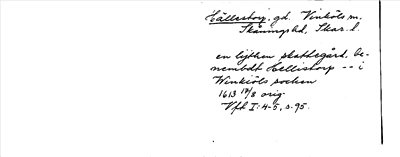 Hällestorp, gd. Vinköls sn.
Skånings hd, Skar. l.
en lythen skattegård, be-
nembdt Hellistorp -- i
Winkiöls socken
1613 19/8 orig.
Vft I: 4-5, s. 95.